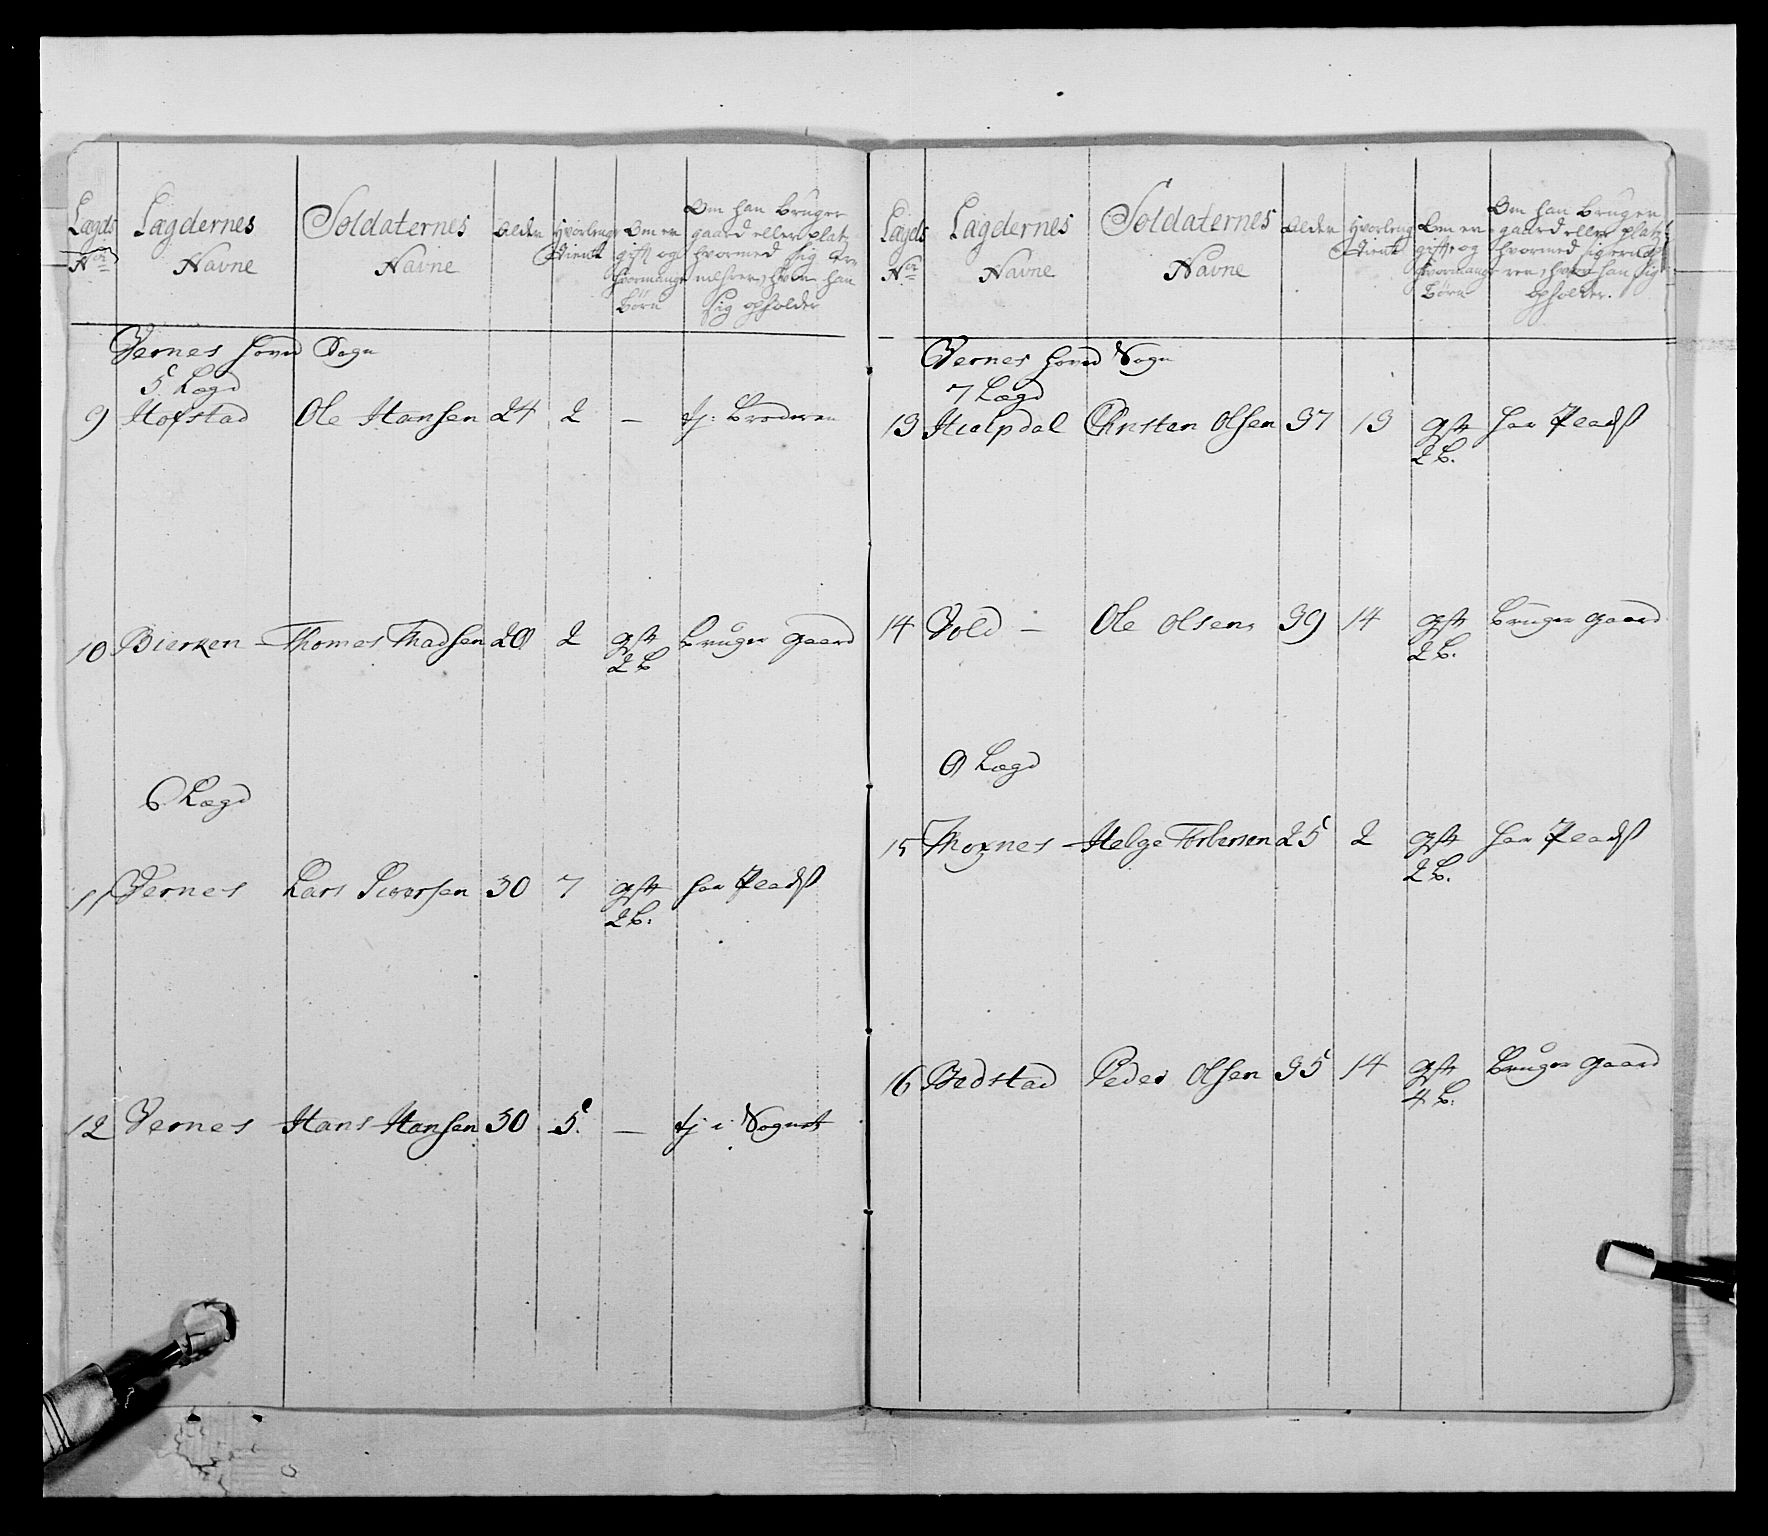 Lægds Nor
Lægdernes Navne
Soldaternes Navne
Alder
Hvorlenge Tient
Om er gift og hvormange Børn
Om han bruger gaard eller platz hvormed sig er han sig opholder
Vernes hoved Sogn
5 Lægd
9 Hofstad Ole Hansen 24 2 — tj: Broderen
10 Bierken Thomes Madsen 28 2 gift 2 b bruger gaard
6 Lægd
11 Vernes Lars Iversen 30 7 gift 2 b: har Pladß
12 Vernes Hans Hansen 30 5. — tj i Sognet
Lægds Nor
Lægdernes Navne
Soldaternes Navne
Alder
Hvorleng Tient
Om er gift, og hvormange Børn
Om han bruger gaard eller platz hvormed sig han sig opholder.
Vernes hoved Sogn
7 Lægd
13 Hialpdal Christen Olsen 37 13 gift 2 b. har Pladß
14 Vold — Ole Olsen 39 14 gift 2 b. bruger gaard
8 Lægd
15 Moxnes Helge Torbersen 25 2 gift 2 b. har Pladß
16 Bedstad Peder Olsen 35 14 gift 4 b. bruger gaard